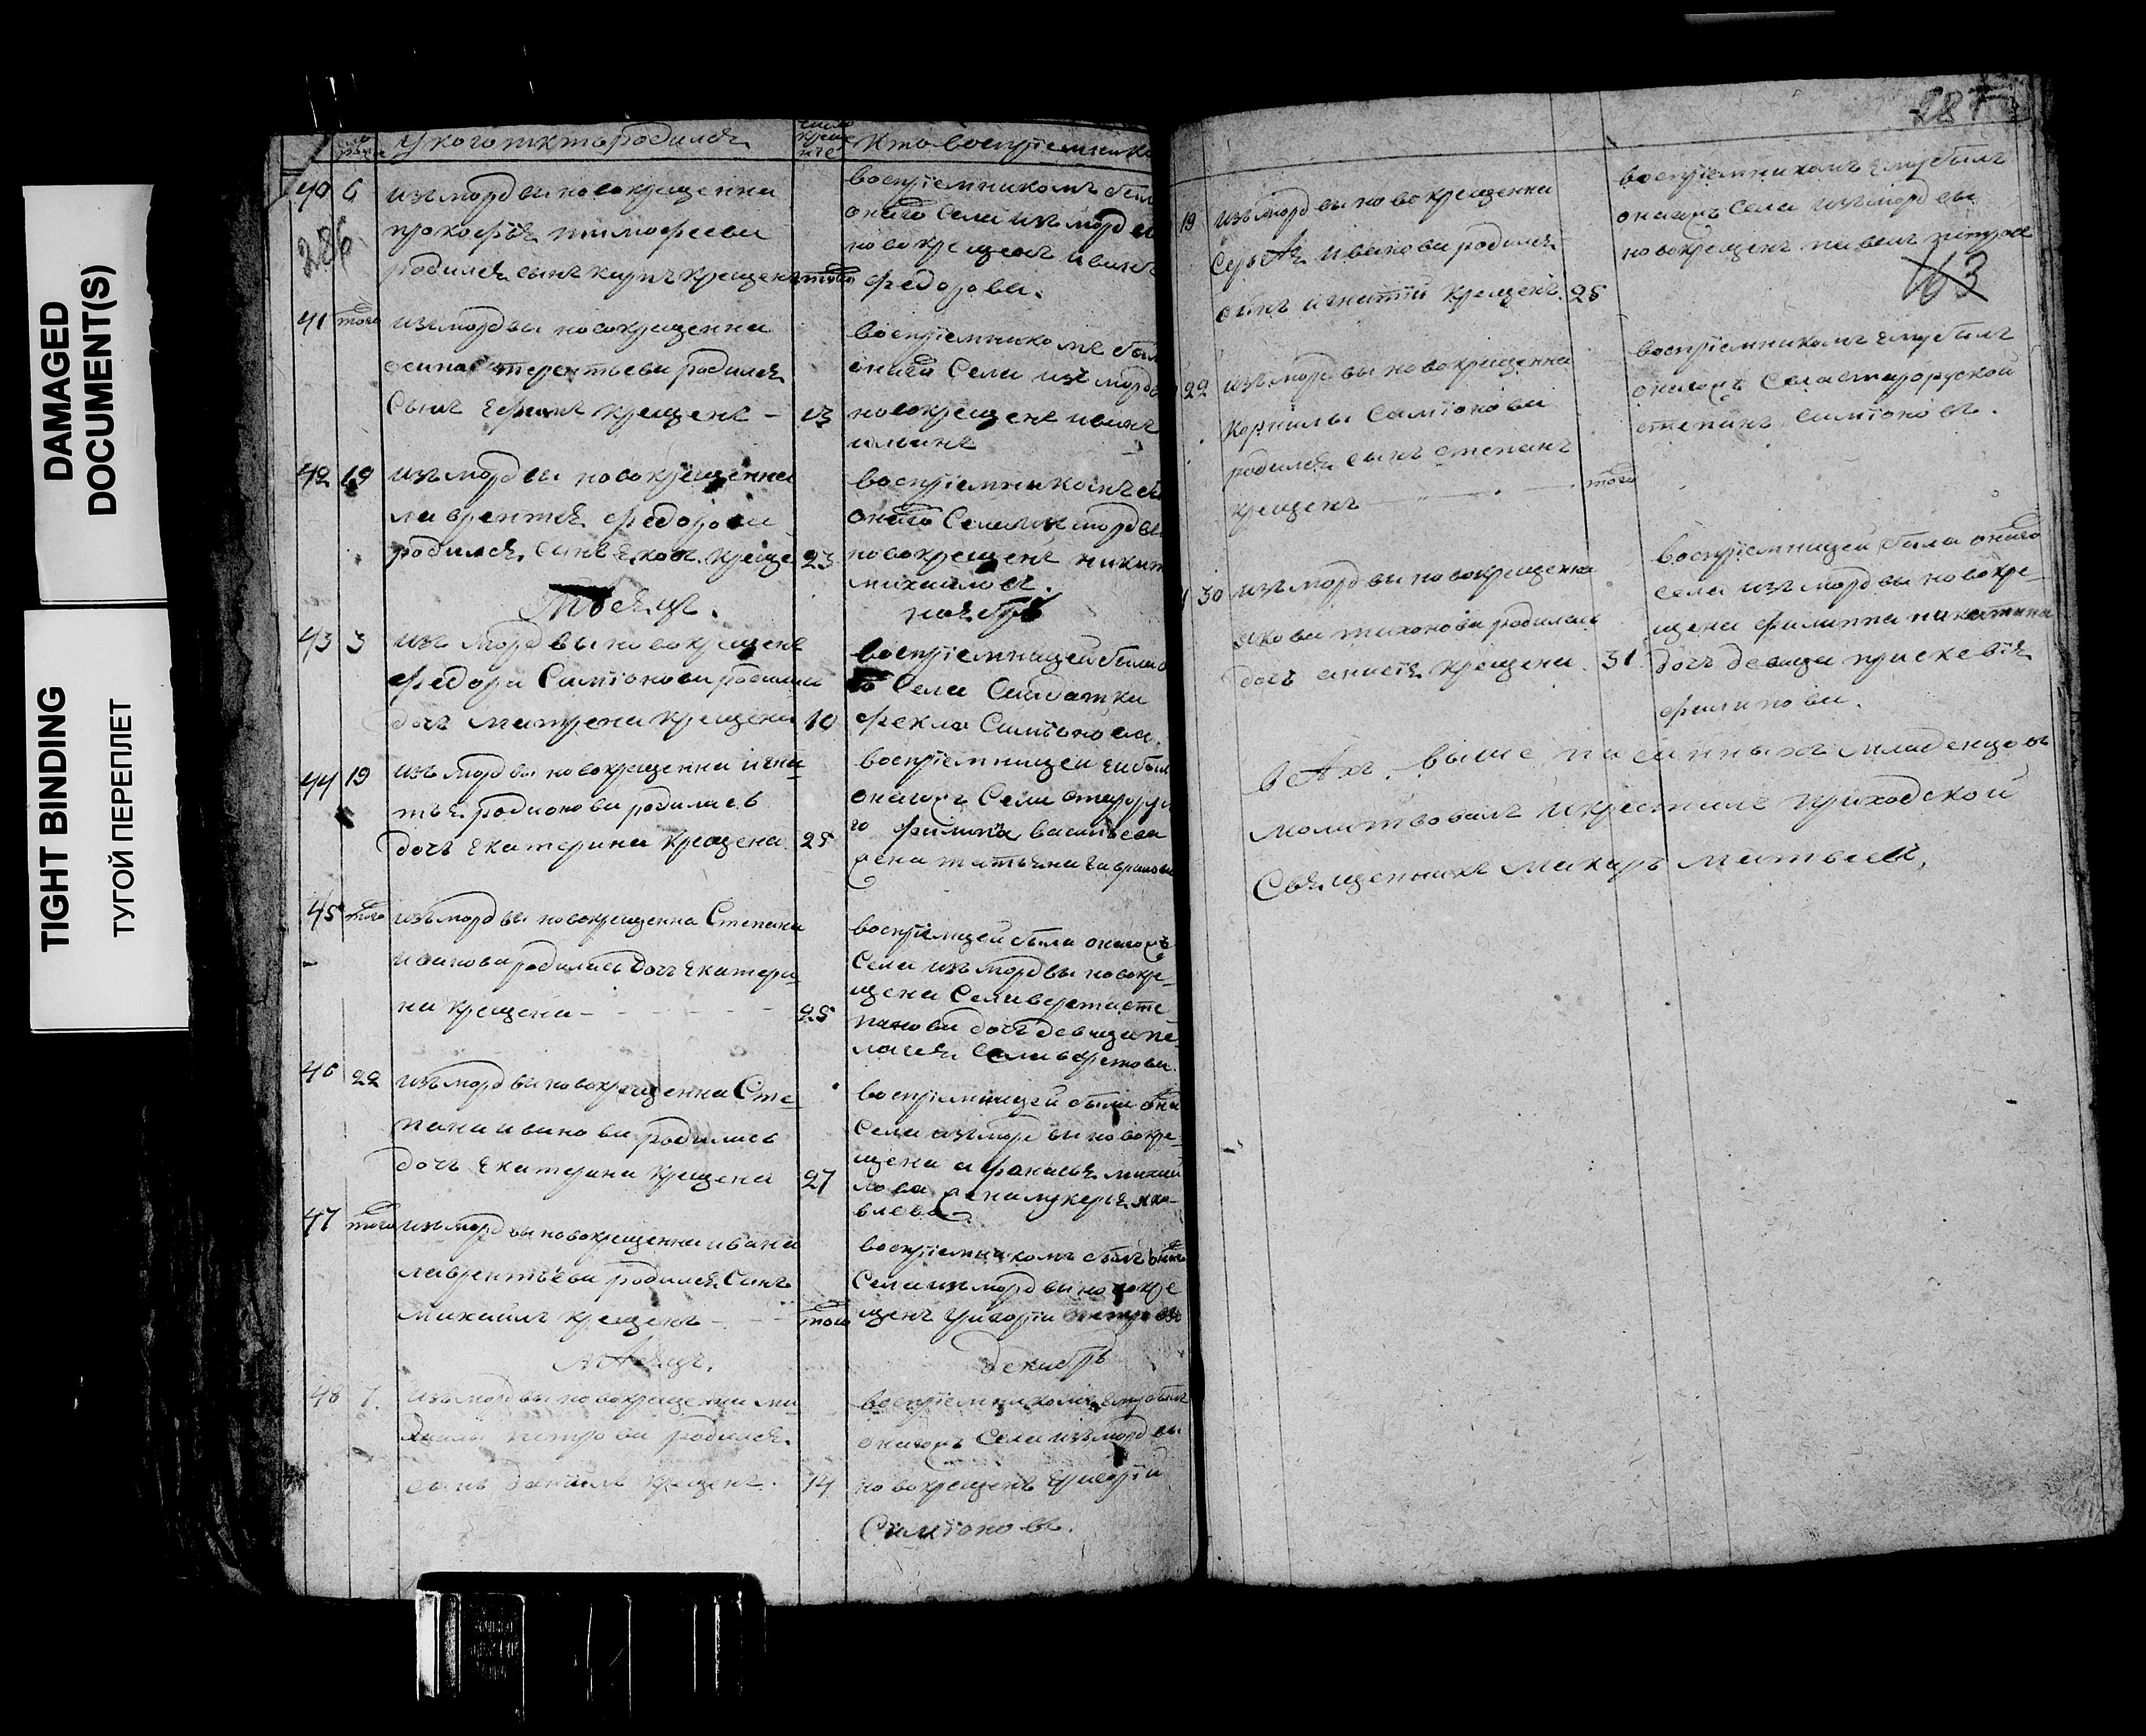 DAMAGED
DOCUMENT(S)
TIGHT BINDING
ТУГОЙ ПЕРЕПЛЕТ
У кого кто родился
число
креще
ние
Кто восприемники
40 6 изъ мордвы новокрещенна
286
прокофья тимофеева
родился сынъ карпъ крещенъ того
восприемникомъ был
онаго Села изъ мордвы
новокрещенъ иванъ
федорова.
41 того изъ мордвы новокрещенна
осипа терентьева родился
Сынъ ефимъ крещенъ - 13
восприемникомъ был
онаго Села изъ мордв
новокрещенъ иванъ
ильинъ
42 19 изъ мордвы новокрещенна
лаврентья федорова
родился сынъ яковъ креще 23
восприемникомъ
онаго Села изъ мордвы
новокрещенъ никит
михаиловъ.
Мѣсяцъ.
ноябрь
43 3 изъ мордвы новокрещенъ
федора Симионова родилась
дочь матрена крещена 10
восприемницей была
Села Салдатка
фекла Симионова.
44 19 изъ мордвы новокрещенна игна-
тья родионова родилась
дочь екатерина крещена 25
восприемницей ей был
онагожъ Села старору
го филипа васильева
жена татьяна гаврилова
45 того изъ мордвы новокрещенна Степана
иванова родилась дочь екатери-
на крещена - - - - - 25
восприемцей была онагожъ
Села изъ мордвы новокре-
щена Селиверста сте
панова дочь девица пе-
лагея Селиверстова.
46 22 изъ мордвы новокрещенна Сте-
пана иванова родилась
дочь екатерина крещена 27
восприемницей была она
Села изъ мордвы новокре-
щена афанасья михаи
лова жена лукерья яко-
влева.
47 того изъ мордвы новокрещенна ивана
лаврентьева родился Сынъ
михаилъ крещенъ - - - того
восприемникомъ былъ
Села изъ мордвы новокре
щенъ григории петровъ
Мѣсяцъ.
декабрь
48 7. изъ мордвы новокрещенна ми-
хаилы петрова родился
сынъ данилъ крещенъ. 14
восприемникомъ ему былъ
онагожъ Села изъ мордвы
новокрещенъ григории
Симионовъ.
287
19 изъ мордвы новокрещенна
Сергѣя иванова родился
сынъ игнатии крещенъ. 25
восприемникомъ ему былъ
онагожъ Села изъ мордвы
новокрещенъ павелъ петровъ
163
22 изъ мордвы новокрещенна
корнилы Симионова
родился сынъ степанъ
крещенъ того
восприемникомъ ему былъ
онагожъ Села старорускои
степанъ Симионовъ.
30 изъ мордвы новокрещенна
якова тихонова родилась
дочь анисья крещена. 31.
восприемницей была онаго
села изъ мордвы новокре-
щена филиппа никитина
дочь девица прасковья
филипова.
всѣхъ выше писанныхъ младенцовъ
молитвовалъ и крестилъ приходской
Священникъ Макаръ Матвеевъ,